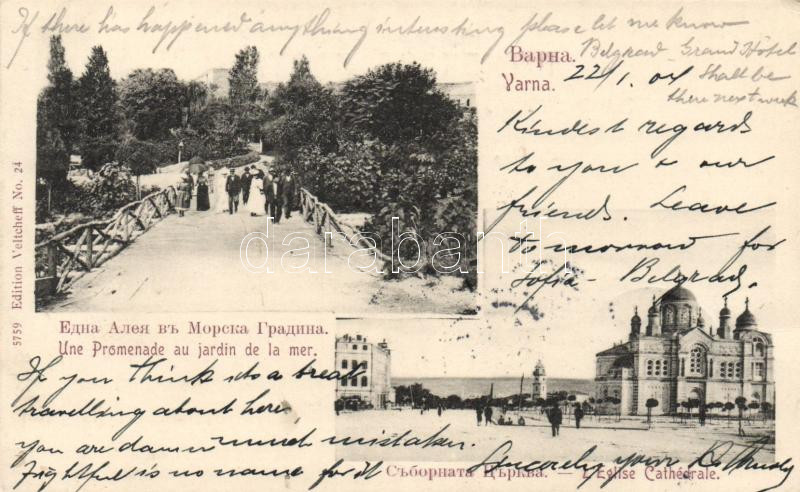 If there has happened anything interesting please let me know
Belgrad Grand Hotel
Shall be
there next week
Варна.
Varna.
22/1. 04
Kindest regards
to you & our
friends. Leave
to morrow for
Sofia - Belgrad.
5759 Edition Veltcheff No. 24
darabanth
Една Алея въ Морска Градина.
Une Promenade au jardin de la mer.
If you think its a break
travelling about here,
you are damn much mistaken.
Frightful is no name for it
Съборната Църква. — L'Eglise Cathédrale.
Sincerely your